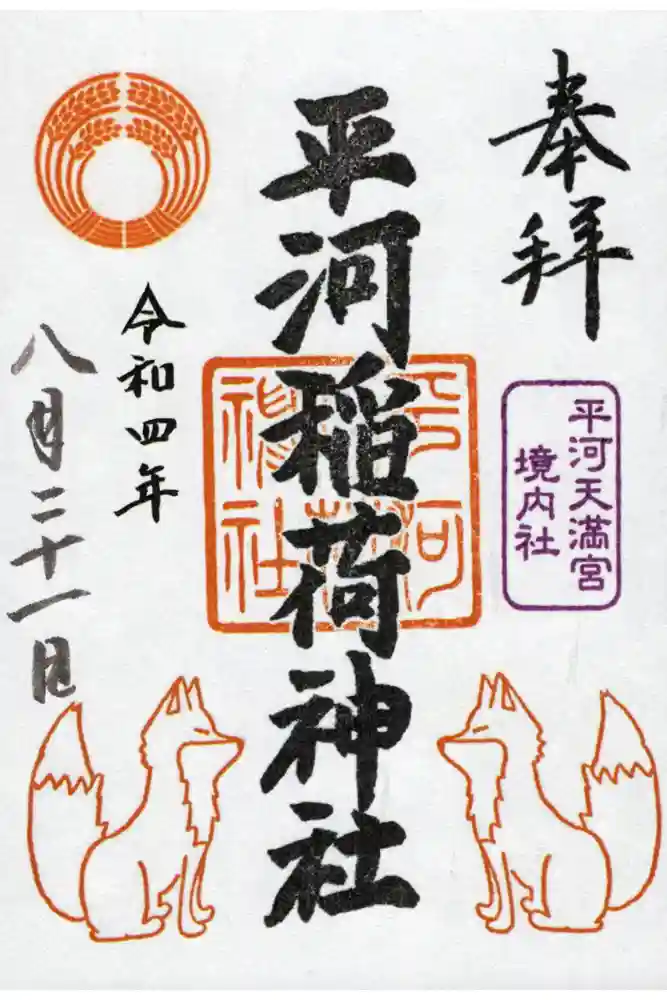 奉拝
平河天満宮
境内社
平河稲荷神社
令和四年
八月二十一日